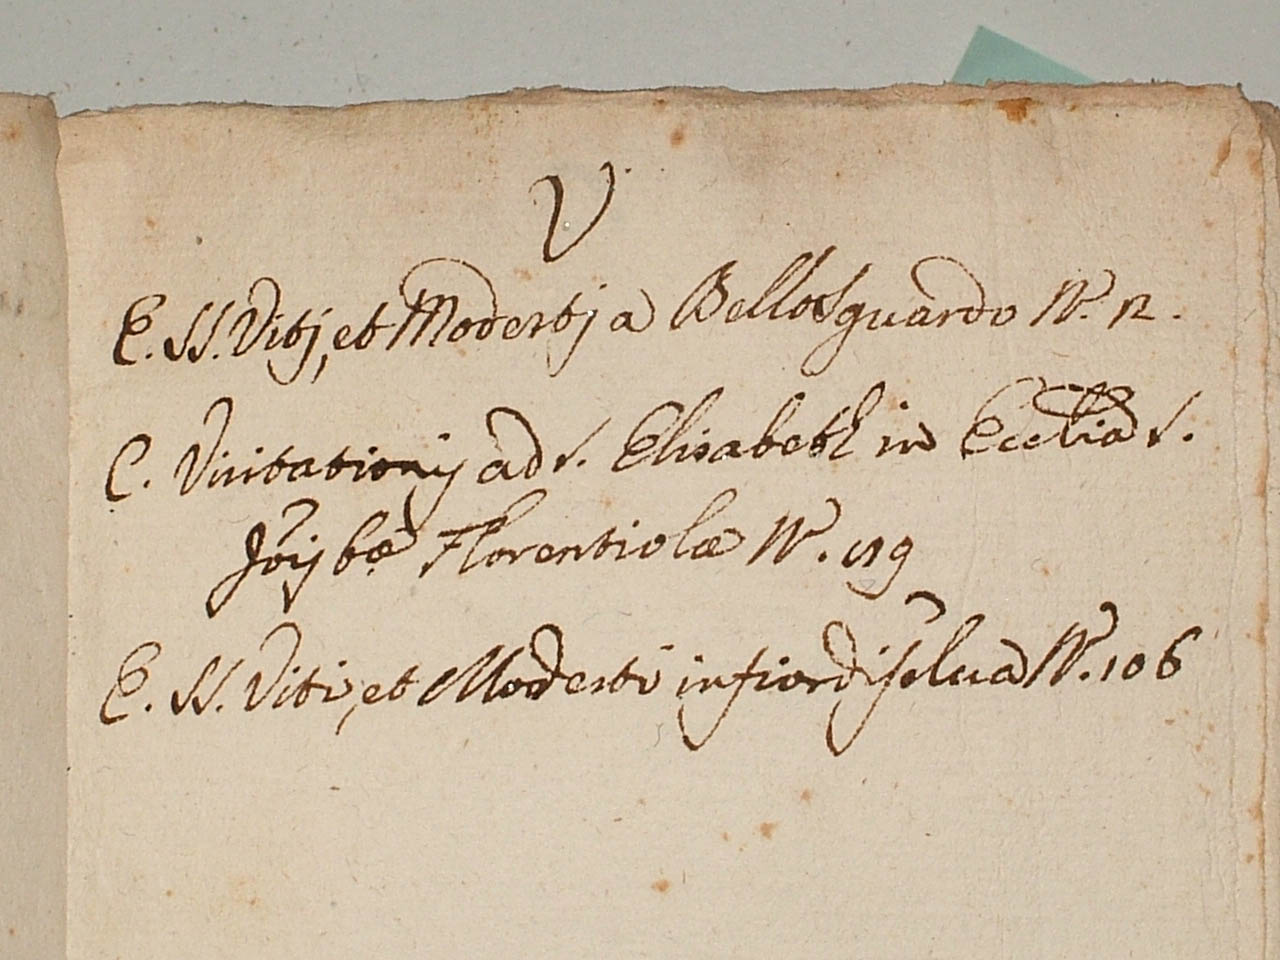 V
E. SS. Vitj, et Modestj a Bellosguardo N. 12.
C. Visitationij ad S. Elisabeth in Ecclia S.
Jõijbæ Florentiolæ N. 119
E. SS. Viti, et Modesti in fior di Selua N. 106